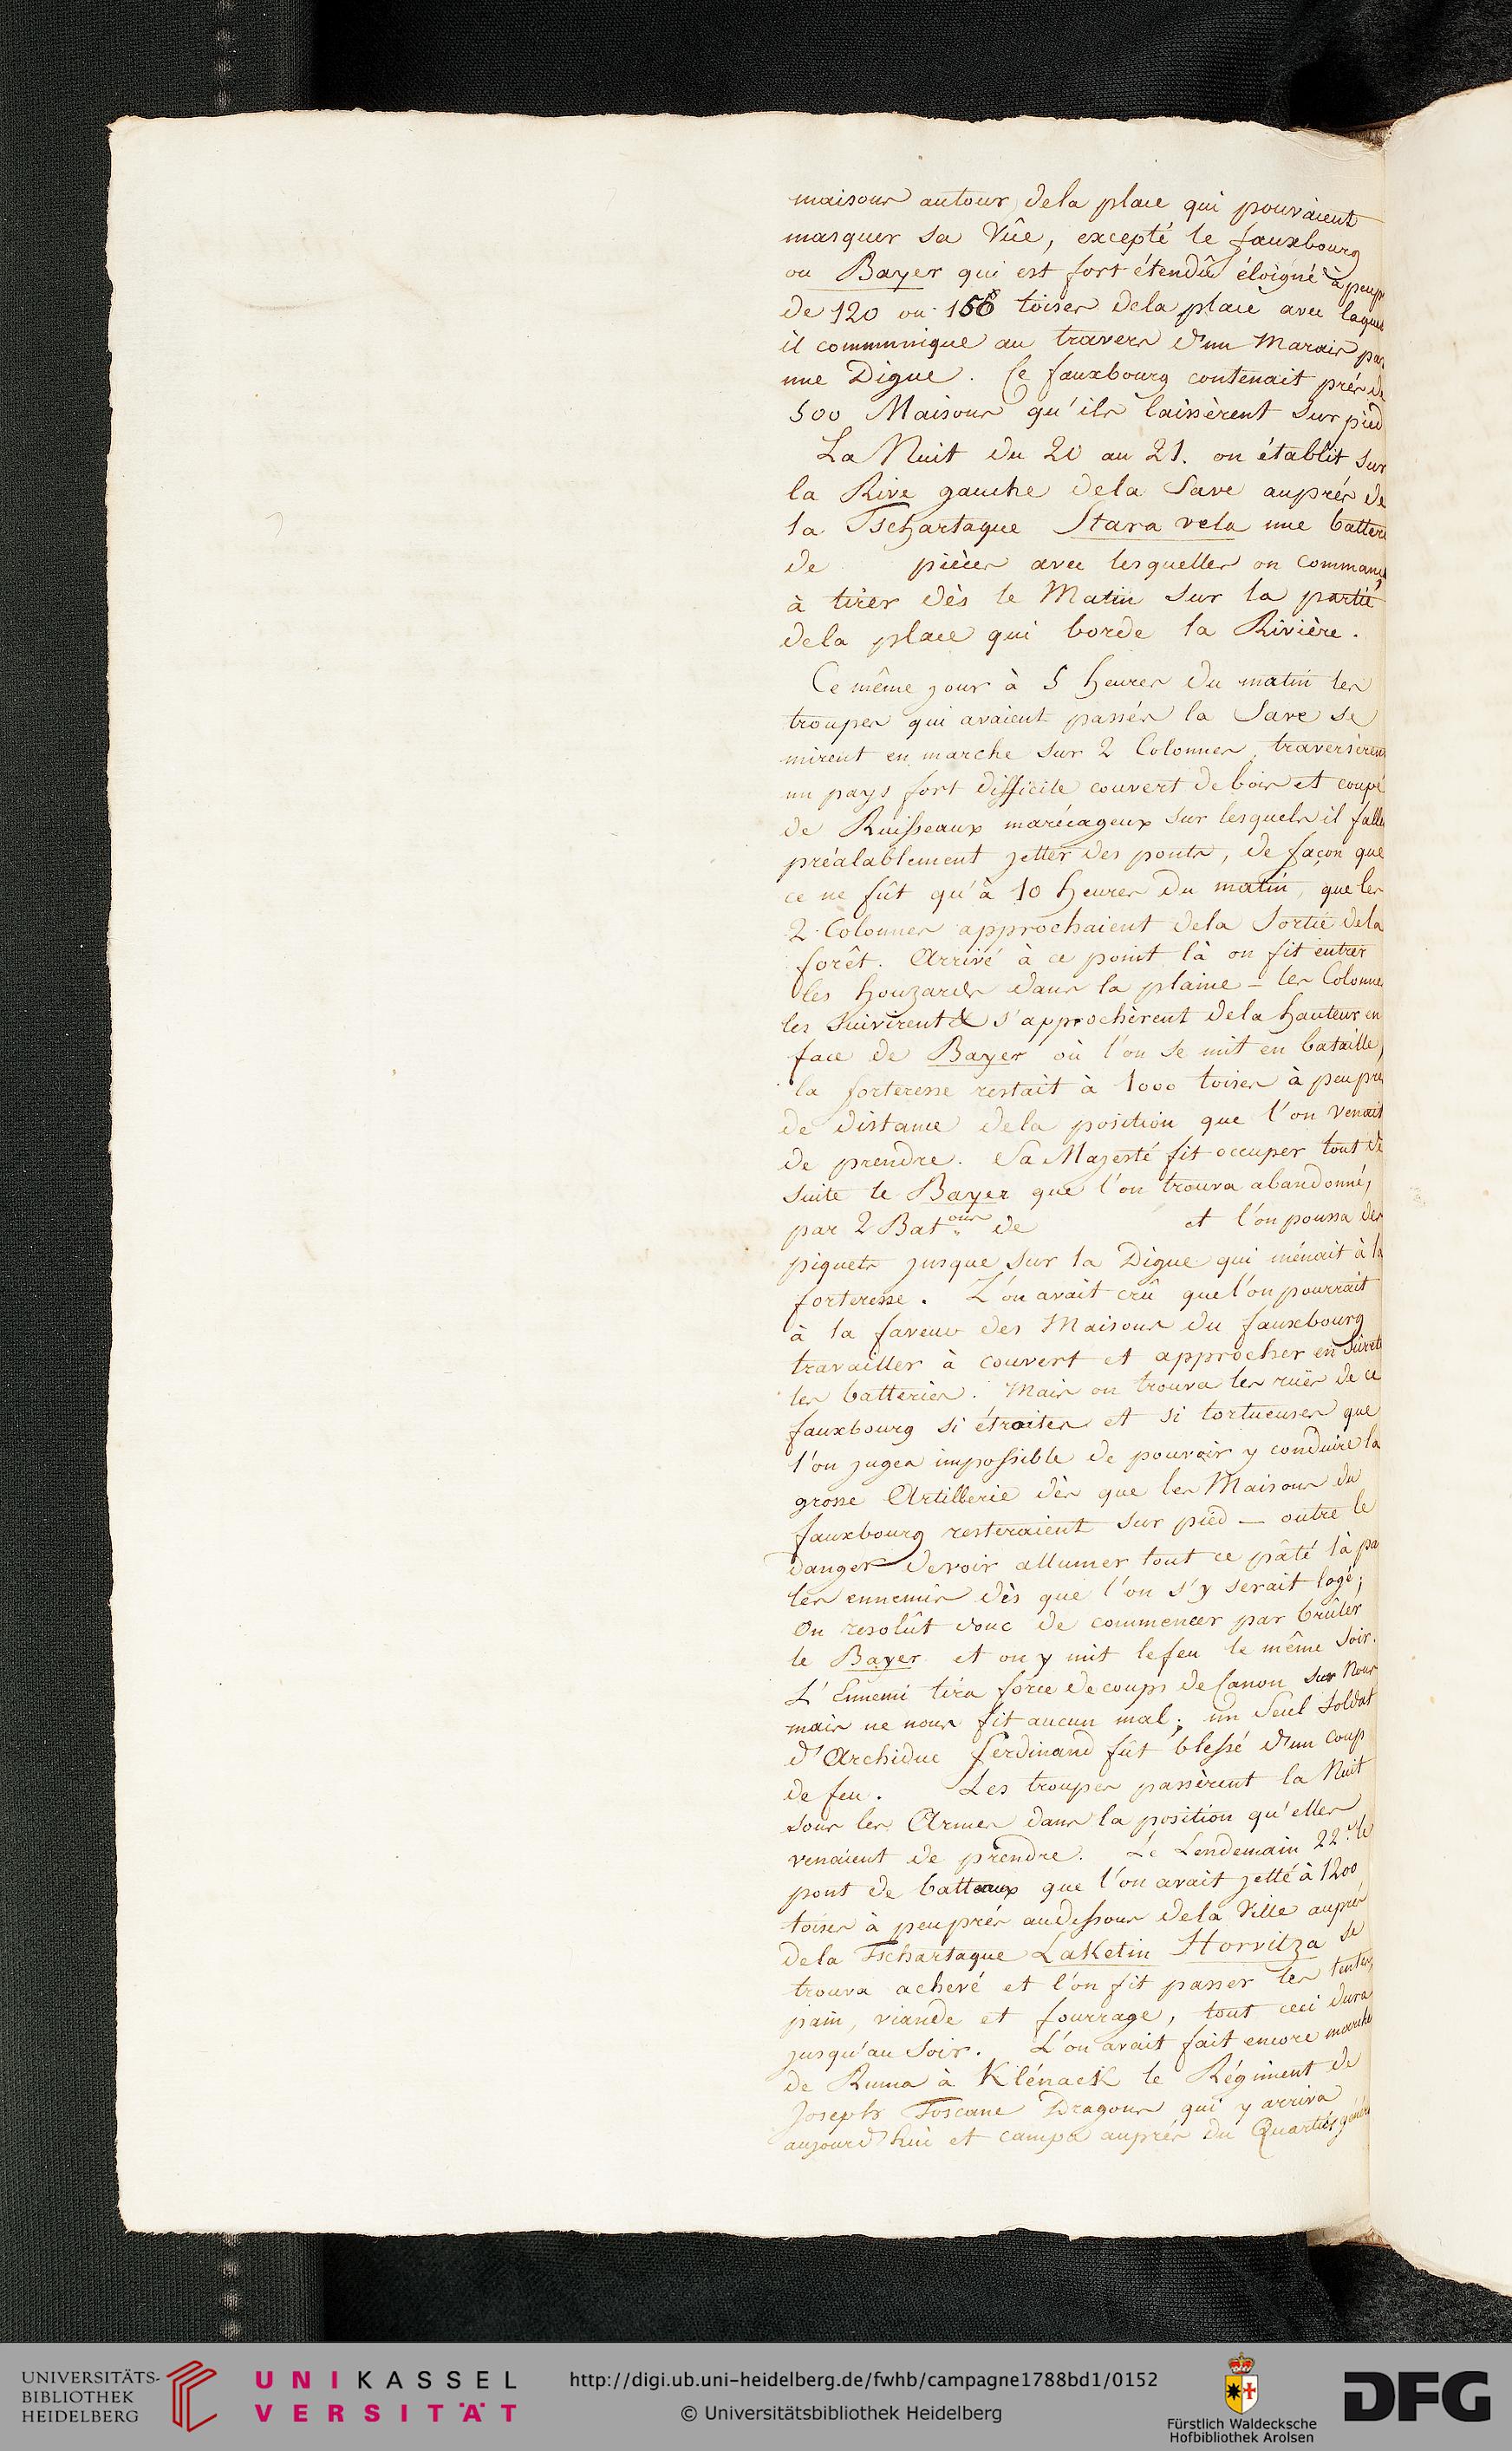 maisons autour dela place qui pouvaient
masquer sa Vûe, excepté le fauxbourg
ou Bayer qui est fort étendû éloigné à peup
de 120 ou 150 toises dela place avec laque
il communique au travers d'un Marais par
une Digue. Ce fauxbourg contenait près de
500 Maisons qu'ils laissèrent sur pied
La Nuit du 20 au 21. on établit sur
la Rive gauche dela Save auprès de
la Tschartaque Stara vela une batteri
de pièces avec lesquelles on commanç
à tirer dès le Matin sur la partie
dela place qui borde la Rivière.
Ce même jour à 5 heures du matin les
troupes qui avaient passés la Save se
mirent en marche sur 2 Colonnes, traversèrent
un pays fort difficile couvert de bois et coupé
de Ruisseaux marécageux sur lesquels il fallu
préalablement jetter des ponts, de façon que
ce ne fût qu'à 10 heures du matin, que les
2 Colonnes approchaient dela Sortie dela
forêt. Arrivé à ce point là on fit entrer
les houzards dans la plaine – les Colonnes
les suivirent & s'approchèrent dela hauteur en
face de Bayer où l'on se mit en bataille,
la forteresse restait à 1000 toises à peu près
de distance dela position que l'on venait
de prendre. Sa Majesté fit occuper tout de
suite le Bayer que l'on trouva abandonné,
par 2 Bat.ons de et l'on poussa des
piquets jusque sur la Digue qui ménait à la
forteresse. L'on avait crû que l'on pourrait
à la faveur des Maisons du fauxbourg
travailler à couvert et approcher en Sûreté
les batteries. Mais on trouva les ruës de ce
fauxbourg si étroites et si tortueuses que
l'on jugea impossible de pouvoir y conduire la
grosse Artillerie dès que les Maisons du
fauxbourg resteraient sur pied — outre le
danger devoir allumer tout ce pâté là pa
les ennemis dès que l'on s'y serait logé;
On resolût donc de commencer par brûler
le Bayer et on y mit lefeu le même soir.
L'Ennemi tira force de coups de Canon sur Nous
mais ne nous fit aucun mal; un Seul Soldat
d'Archiduc Ferdinand fût blessé d'un coup
de feu. Les troupes passèrent la Nuit
sous les Armes dans la position qu'elles
venaient de prendre. Le Lendemain 22. le
pont de batteaux que l'on avait jetté à 1200
toises à peuprès audessous dela Ville auprès
dela Tschartaque LaKetin Horvitza se
trouva achevé et l'on fit passer les tentes,
pain, viande et fourrage, tout ceci dura
jusqu'au Soir. L'on avait fait encore marcher
de Ruma à Klénack le Régiment de
Joseph Toscane Dragons qui y arriva
aujourd'hui et campa auprès du Quartier géner
UNIVERSITÄTS-
BIBLIOTHEK
HEIDELBERG
UNIKASSEL
VERSITÄT
http://digi.ub.uni-heidelberg.de/fwhb/campagne1788bd1/0152
© Universitätsbibliothek Heidelberg
Fürstlich Waldecksche
Hofbibliothek Arolsen
DFG